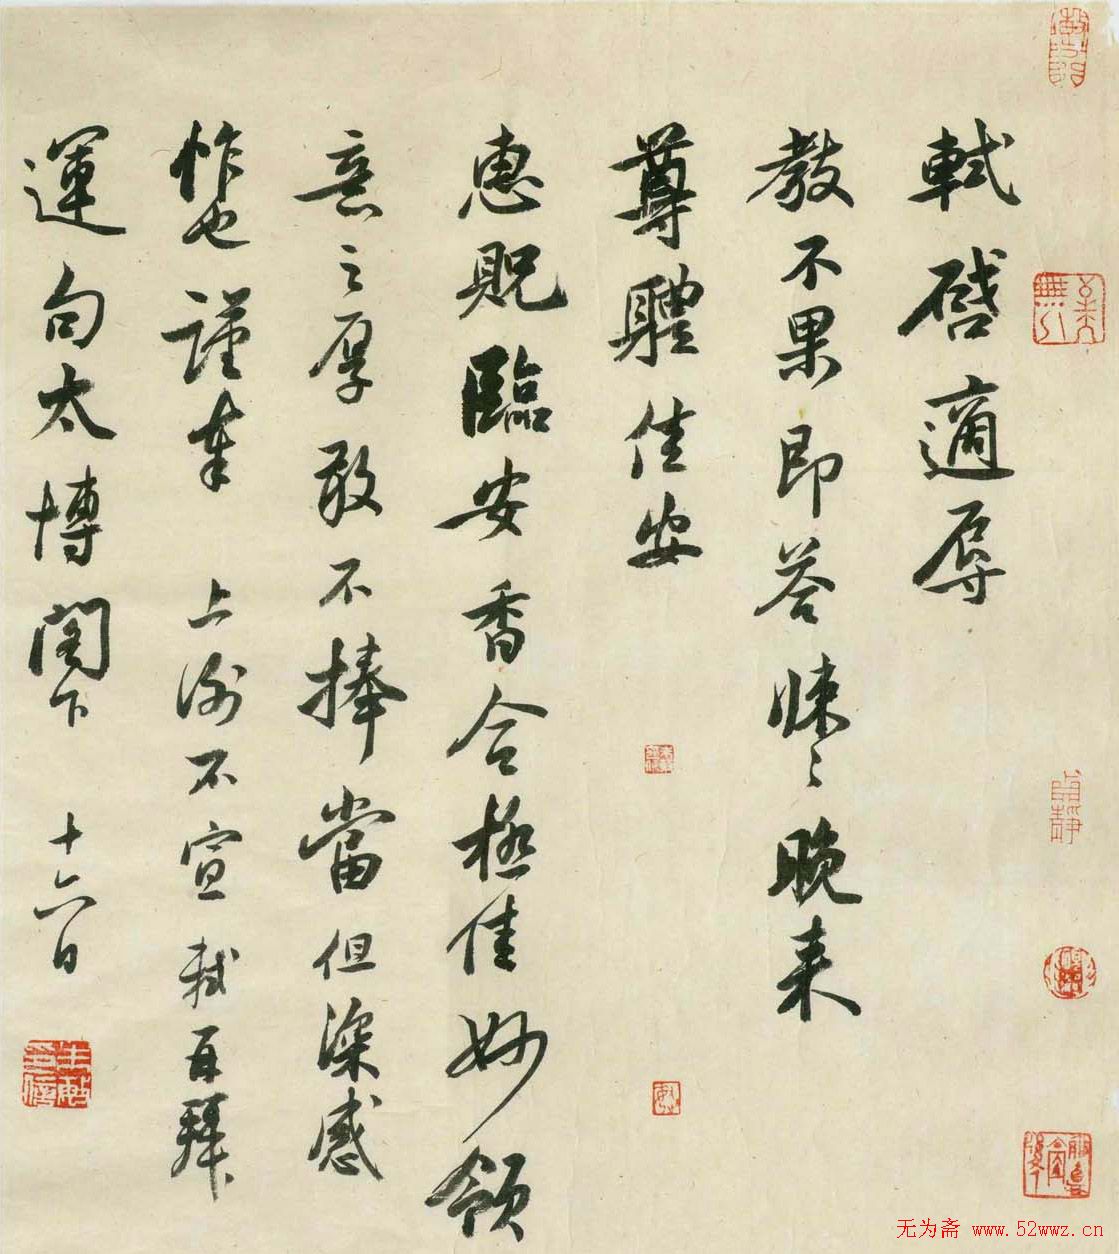 軾啓適辱
教不果即答悚〻晚来
尊體佳安
惠貺臨安香合極佳妙領
意之厚敢不捧當但深感
怍也謹奉 上謝不宣 軾再拜
運句太博閤下 十六日
无为斋 www.52wwz.cn